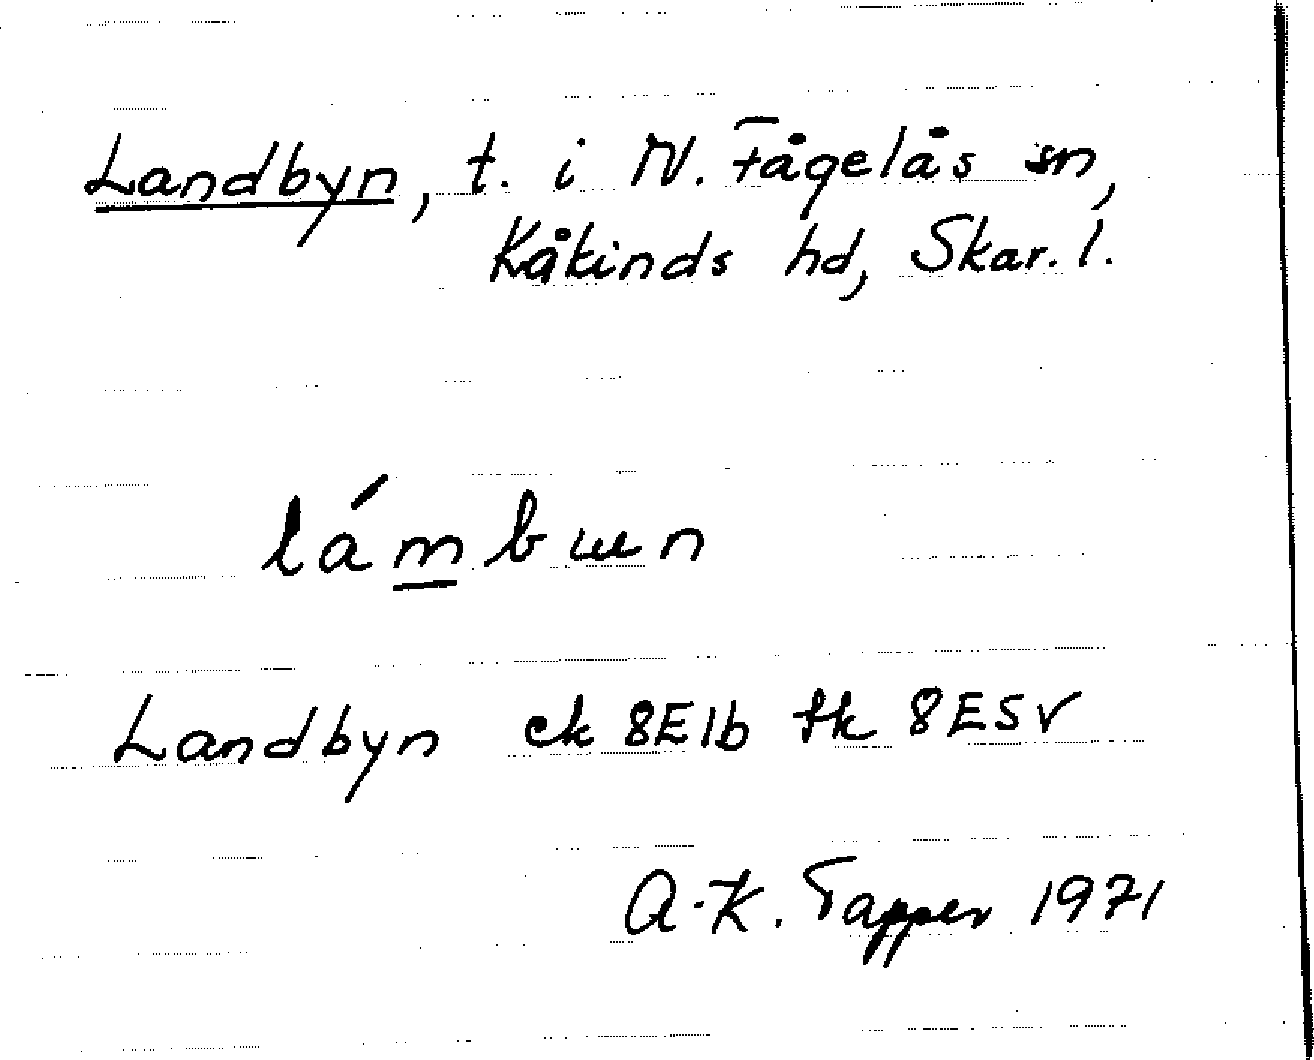 Landbyn, t. i N. Fågelås sn,
Kåkinds hd, Skar. l.
lámbɯn
Landbyn ek 8E1b tk 8E5V
A-K. Tapper 1971